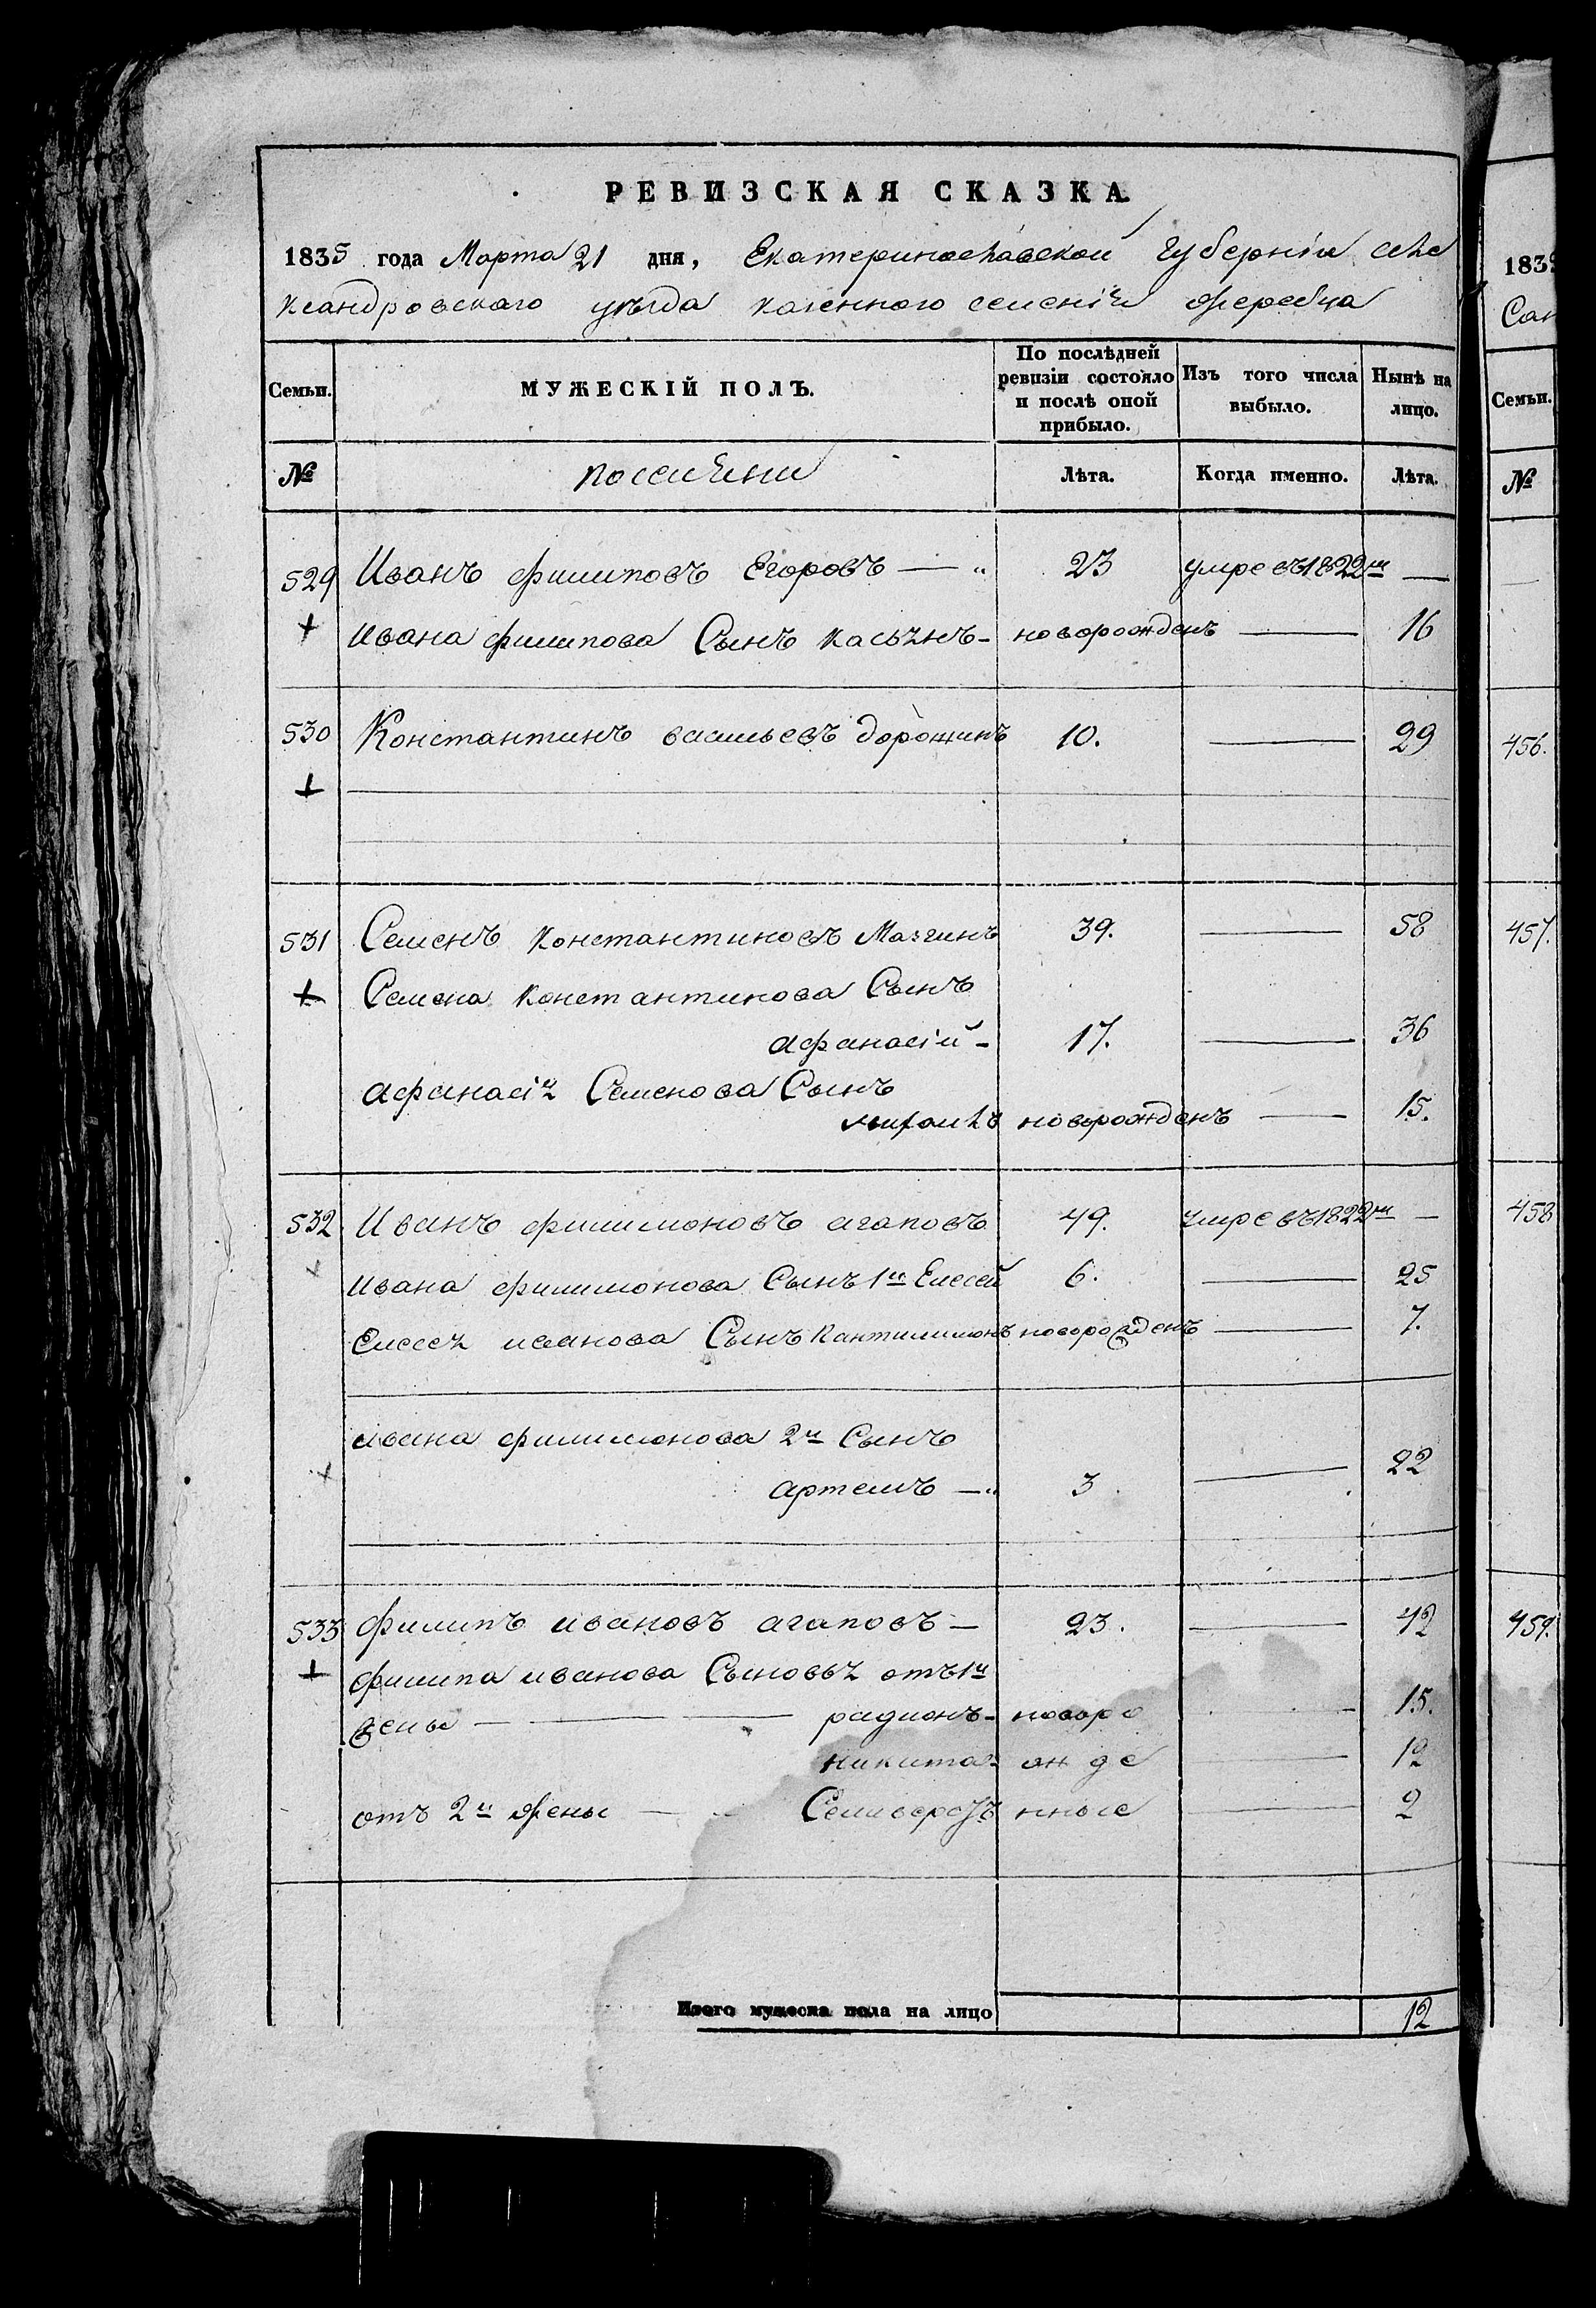 РЕВИЗСКАЯ СКАЗКА.
1835 года Марта 21 дня, Екатеринославской Губернiи але
ксандровскаго уезда казенного селенiя жеребца
Семьи. МУЖЕСКІЙ ПОЛЪ. По послѣдней ревизіи состояло и послѣ оной прибыло. Изъ того числа выбыло. Нынѣ на лицо.
№ Лѣта. Когда именно. Лѣта.
529 Иванъ филиповъ Егоровъ — 23 умре въ 1822м —
Ивана филипова Сынъ касьянъ - новорожденъ — 16
530 Константинъ васильевъ дорошинъ 10. — 29
531 Семенъ константиновъ Мазгинъ 39. — 58
Семена константинова Сынъ
афанасiй - 17. — 36
афанасiя Семенова Сынъ
новорожденъ — 15.
532 Иванъ филимоновъ агаповъ 49. умре въ 1822м —
ивана филимонова Сынъ 1й Елесей 6. — 25
Елесея иванова Сынъ Пантилимонъ новорожденъ — 7.
ивана филимонова 2й Сынъ
артемъ — 3. — 22
533 филипъ ивановъ агаповъ — 23. — 42
филипа иванова Сыновья отъ 1й
жены — радионъ - новоро — 15.
никита - жде — 12
отъ 2й жены — нные — 2
Итого мужеска пола на лицо 12
1835
Семьи.
№
456.
457.
458
459.